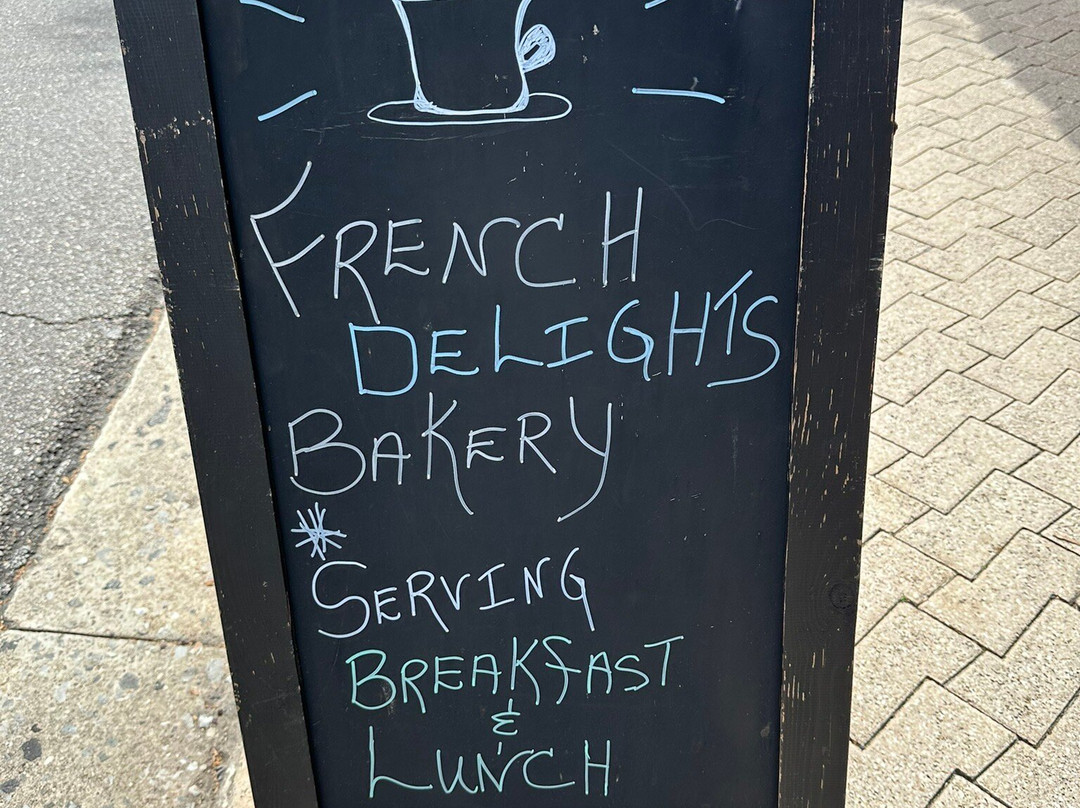 FRENCH
DELIGHTS
BAKERY
* SERVING
BREAKFAST
&
LUNCH